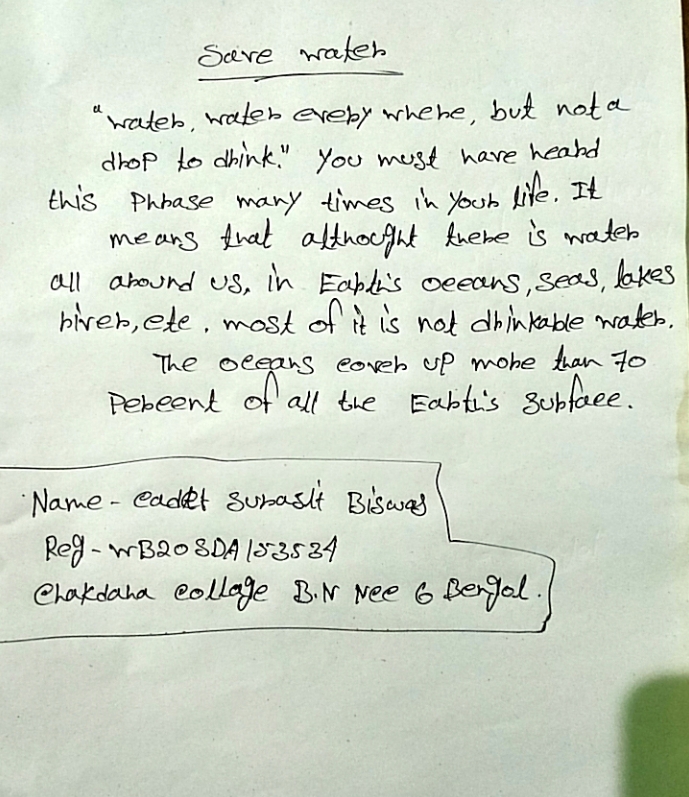 Save water
"water, water every where, but not a
drop to drink." You must have heard
this Phrase many times in your life. It
means that althought there is water
all around us, in Earth's oceans, seas, lakes
river, etc. most of it is not drinkable water.
The oceans cover up more than 70
Percent of all the Earth's surface.
Name - cadet Surasit Biswas
Reg - WB20SDA153534
Chakdaha collage B.N Ncc 6 Bengal.